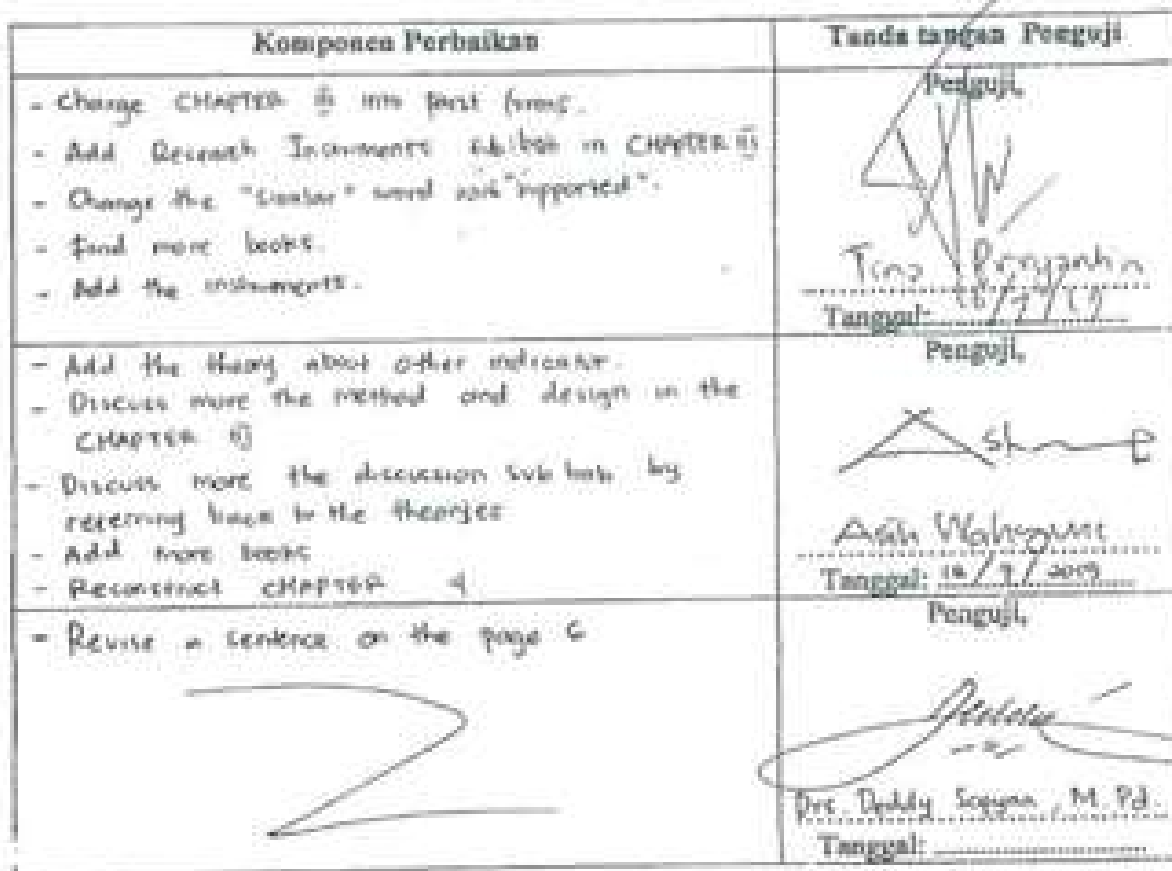 Komponen Perbaikan
Tanda tangan Penguji
- Change CHAPTER iii into past forms.
- Add Research Instruments sub bab in CHAPTER iii
- Change the "similar" word with "supported".
- find more books.
- Add the instruments.
Penguji,
Tina Priyantin
Tanggal:
- Add the theory about other indicator.
- Discuss more the method and design in the
CHAPTER iii
- Discuss more the discussion sub bab by
referring back to the theories
- Add more books
- Reconstruct CHAPTER
Penguji,
Asih Wahyuni
Tanggal: 18/7/2019
- Revise a sentence on the page 6
Penguji,
Drs. Deddy M.Pd.
Tanggal: